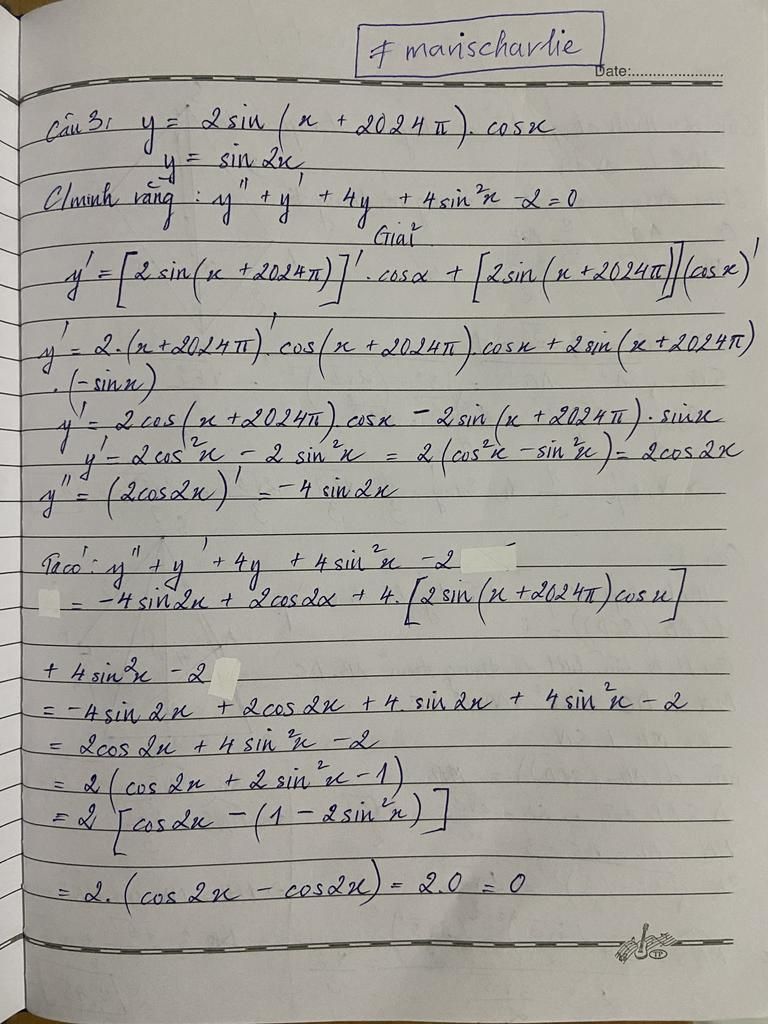 # marischarlie
Date:
Câu 3: y = 2 sin (x + 2024π). cosx
y = sin 2x
C/minh rằng : y" + y' + 4y + 4 sin²x - 2 = 0
Giải
y' = [2 sin(x + 2024π)]' . cosx + [2sin(x + 2024π)](cosx)'
y' = 2.(x+2024π)'. cos(x + 2024π). cosx + 2sin(x + 2024π)
. (-sinx)
y' = 2cos(x + 2024π). cosx - 2sin(x + 2024π). sinx
y' = 2cos²x - 2 sin²x = 2(cos²x - sin²x) = 2cos2x
y" = (2cos2x)' = -4 sin2x
Ta có: y" + y' + 4y + 4 sin²x - 2
= -4 sin2x + 2cos2x + 4. [2 sin(x+2024π)cosx]
+ 4 sin²x - 2
= -4sin 2x + 2cos 2x + 4. sin 2x + 4 sin²x - 2
= 2cos 2x + 4 sin²x - 2
= 2 (cos 2x + 2 sin²x - 1)
= 2 [cos2x - (1 - 2sin²x)]
= 2. (cos 2x - cos2x) = 2.0 = 0
TP